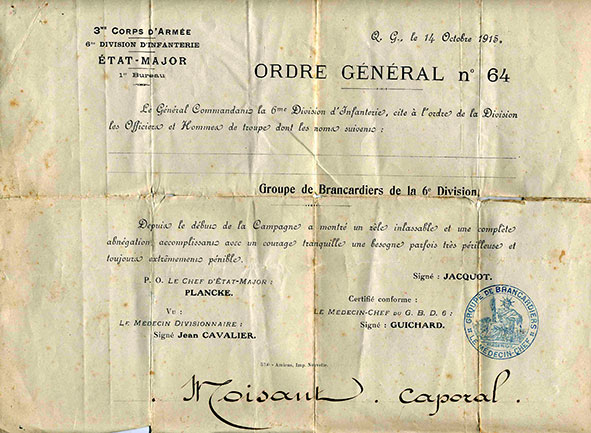 3me CORPS D'ARMÉE
6me DIVISION D'INFANTERIE
ÉTAT-MAJOR
1er BUREAU
Q. G., le 14 Octobre 1915.
ORDRE GÉNÉRAL n° 64
Le Général Commandant la 6me Division d'Infanterie, cite à l'ordre de la Division
les Officiers et Hommes de troupe dont les noms suivent :
Groupe de Brancardiers de la 6e Division.
Depuis le début de la Campagne a montré un zèle inlassable et une complète
abnégation, accomplissant avec un courage tranquille une besogne parfois très périlleuse et
toujours extrêmement pénible.
Signé : JACQUOT.
P. O. LE CHEF D'ÉTAT-MAJOR :
PLANCKE.
Certifié conforme :
VU :
LE MÉDECIN-CHEF DU G. B. D. 6 :
LE MÉDECIN DIVISIONNAIRE :
Signé : GUICHARD.
Signé Jean CAVALIER.
GROUPE DE BRANCARDIERS
LE MÉDECIN-CHEF
Amiens, Imp.
. Noisant . caporal .